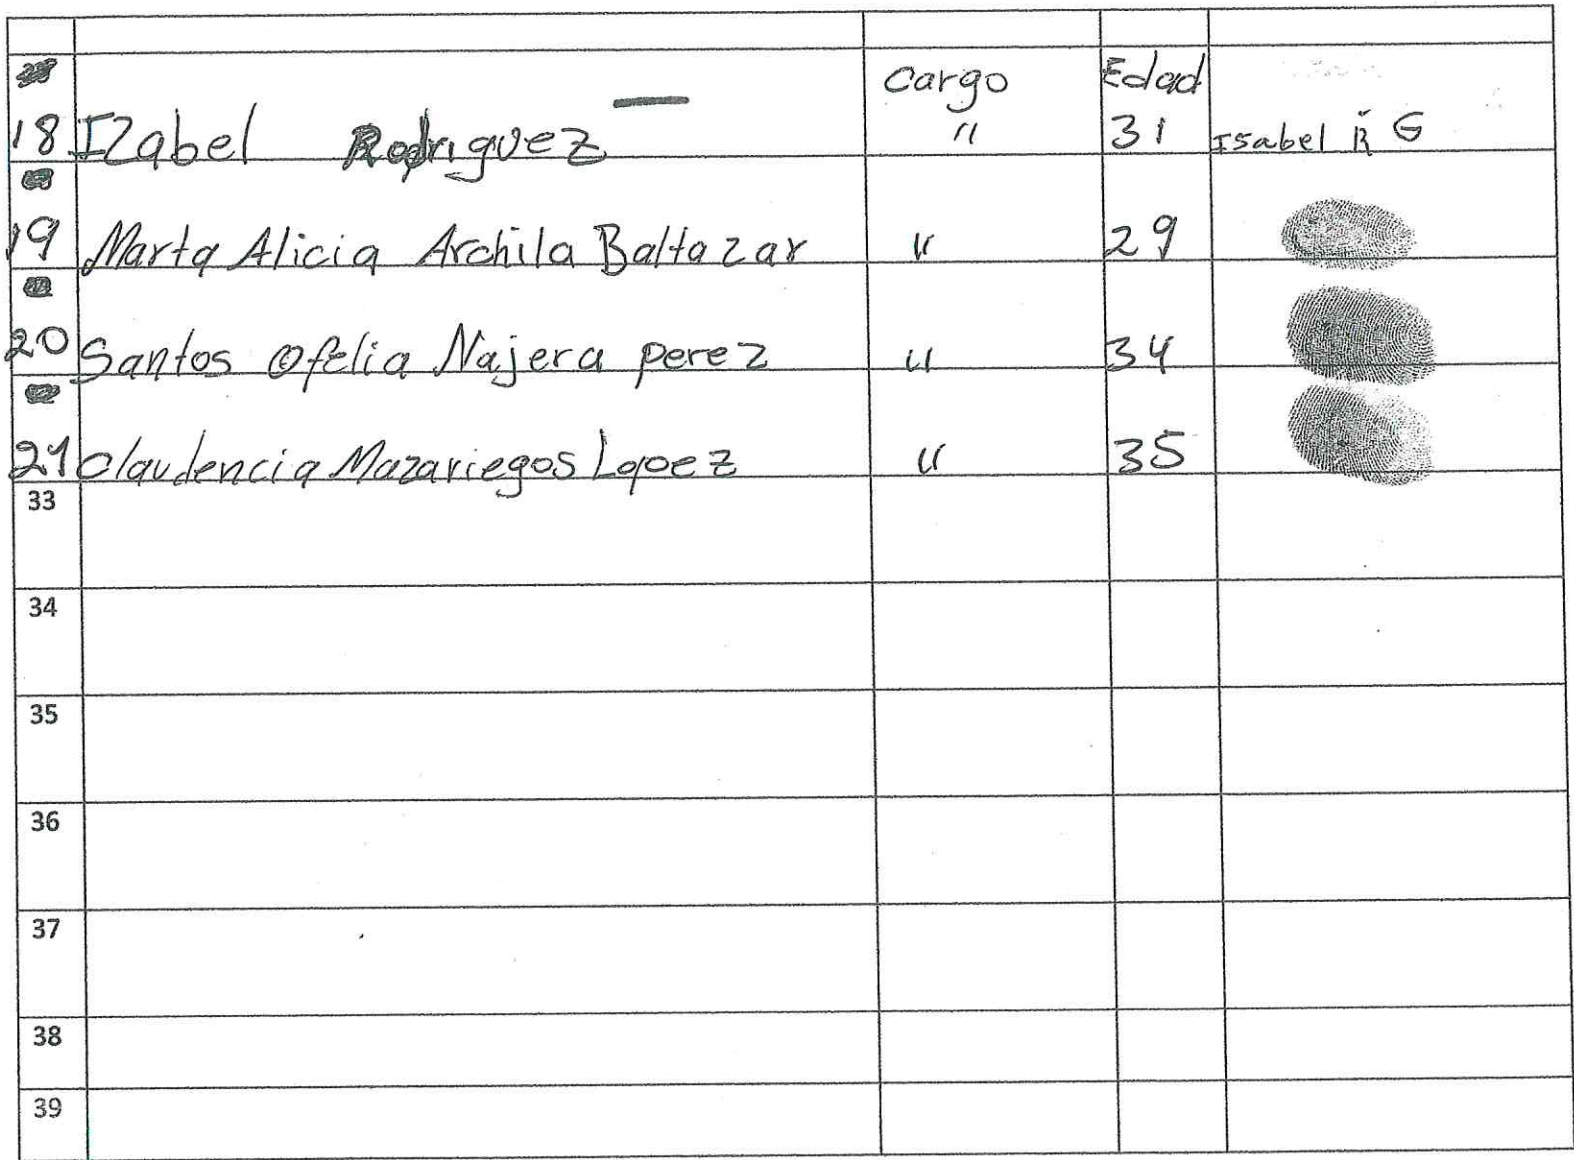 Cargo Edad
18 Izabel Rodriguez " 31 Isabel R G
19 Marta Alicia Archila Baltazar " 29
20 Santos Ofelia Najera perez " 34
21 Claudencia Mazariegos Lopez " 35
33
34
35
36
37
38
39